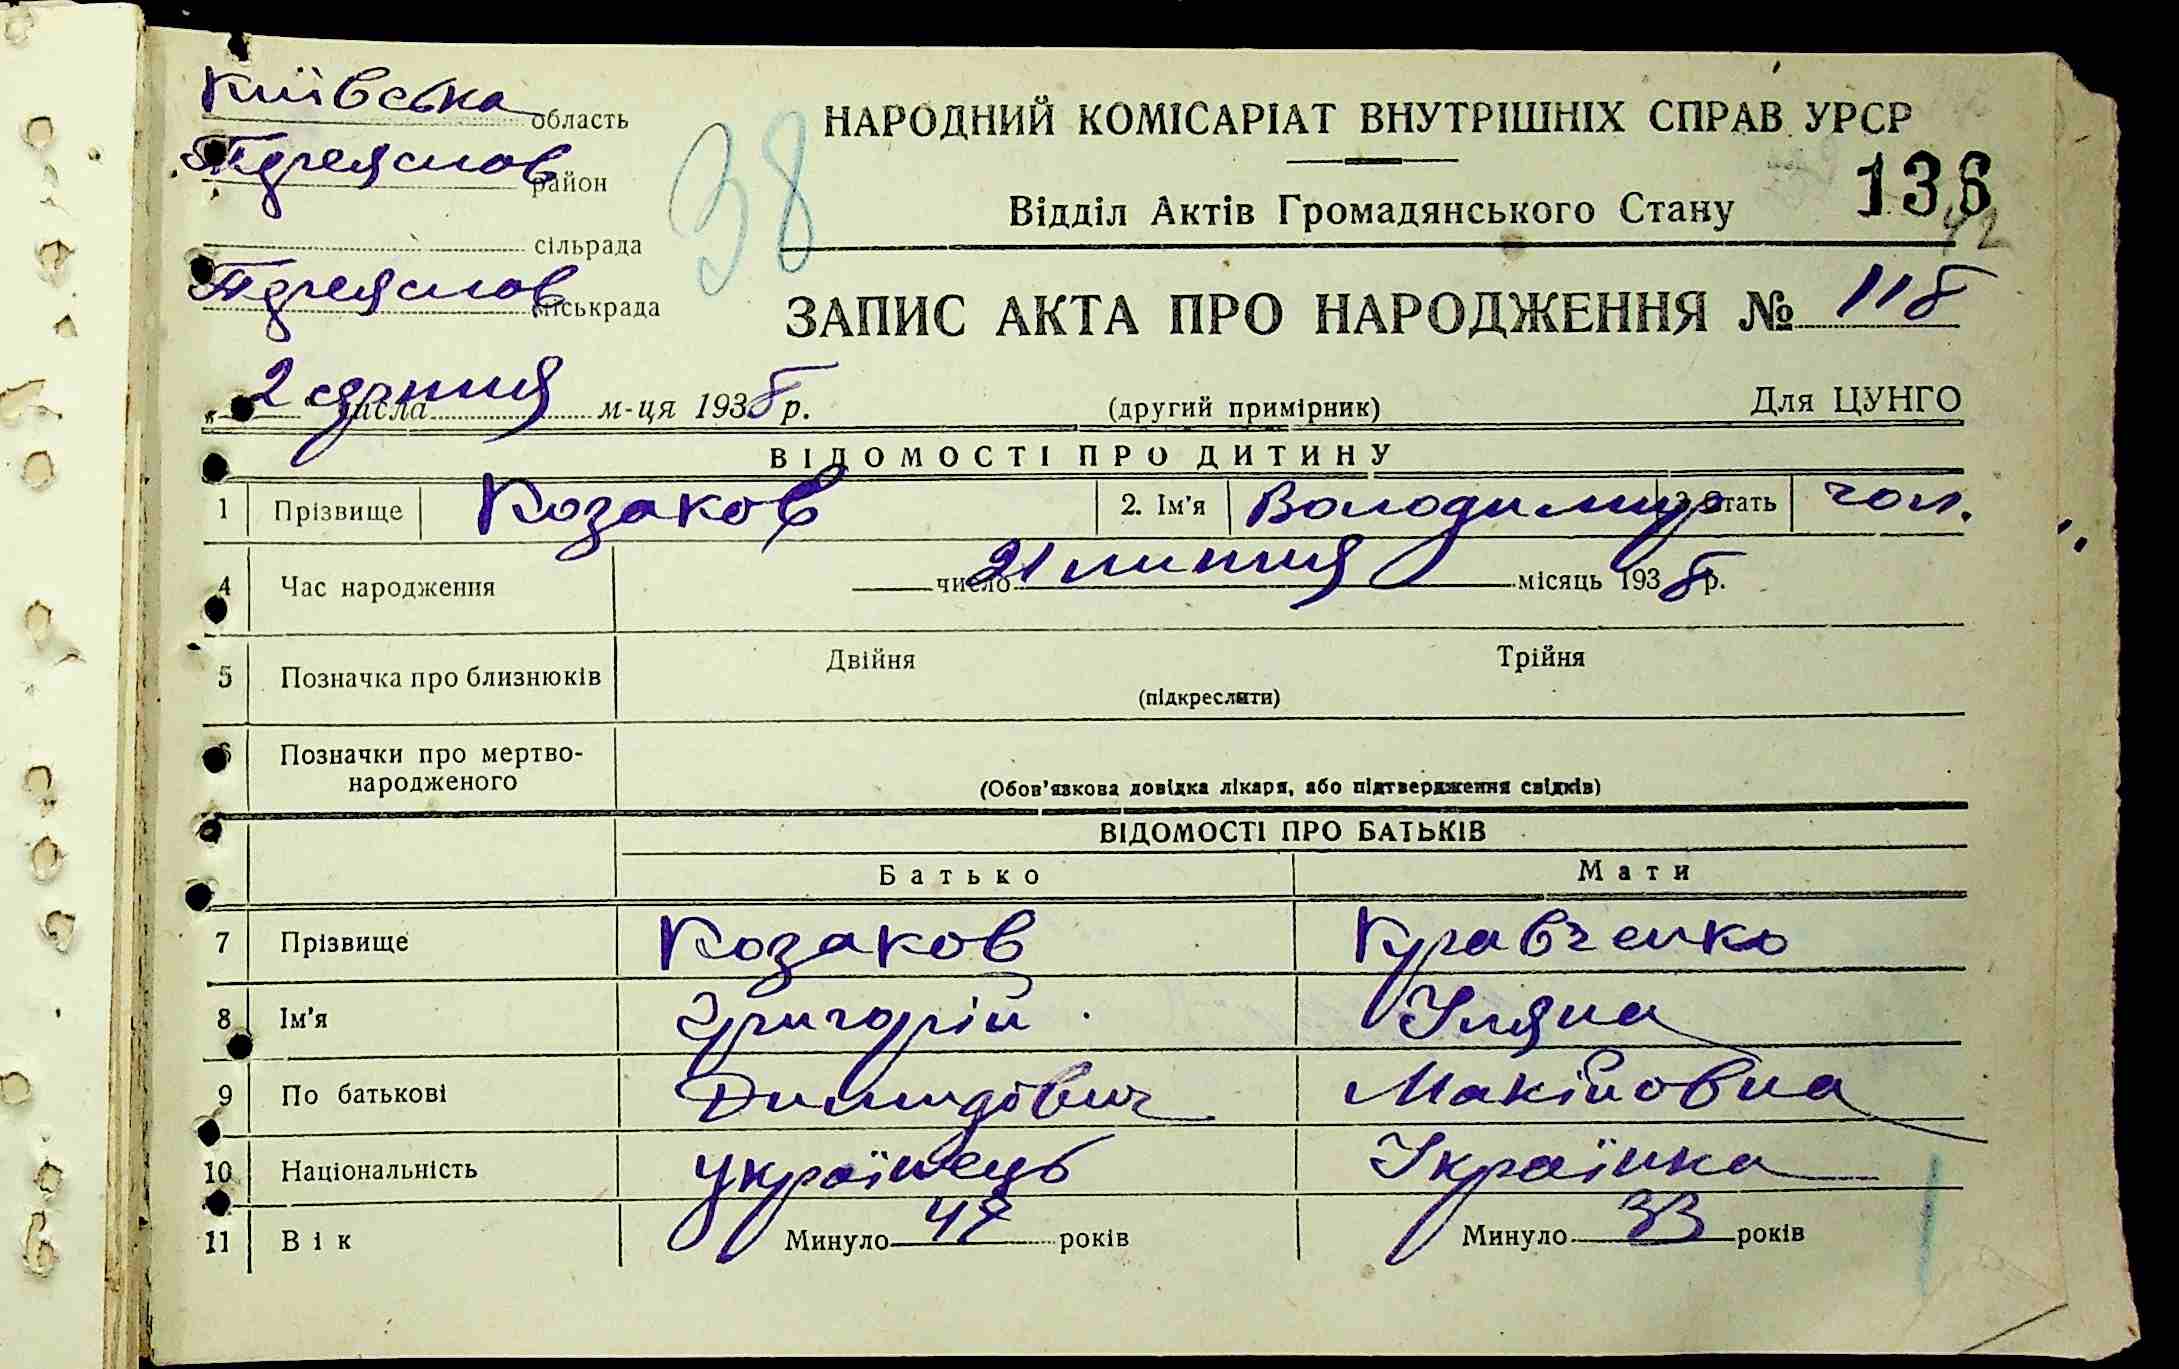 Київська область
38
НАРОДНИЙ КОМІСАРІАТ ВНУТРІШНІХ СПРАВ УРСР
район
136
Відділ Актів Громадянського Стану
42
сільрада
міськрада
ЗАПИС АКТА ПРО НАРОДЖЕННЯ № 118
„2" числа серпня м-ця 1938 р.
(другий примірник)
Для ЦУНГО
ВІДОМОСТІ ПРО ДИТИНУ
1 Прізвище Козаков 2. Ім'я Володимир 3 Стать чол.
4 Час народження число 21 липня місяць 1938 р.
5 Позначка про близнюків Двійня Трійня
(підкреслити)
6 Позначки про мертво-
народженого
(Обов'язкова довідка лікаря, або підтвердження свідків)
ВІДОМОСТІ ПРО БАТЬКІВ
Батько Мати
7 Прізвище Козаков Кравченко
8 Ім'я Григорій Уляна
9 По батькові
10 Національність українець Українка
11 Вік Минуло 47 років Минуло 33 років